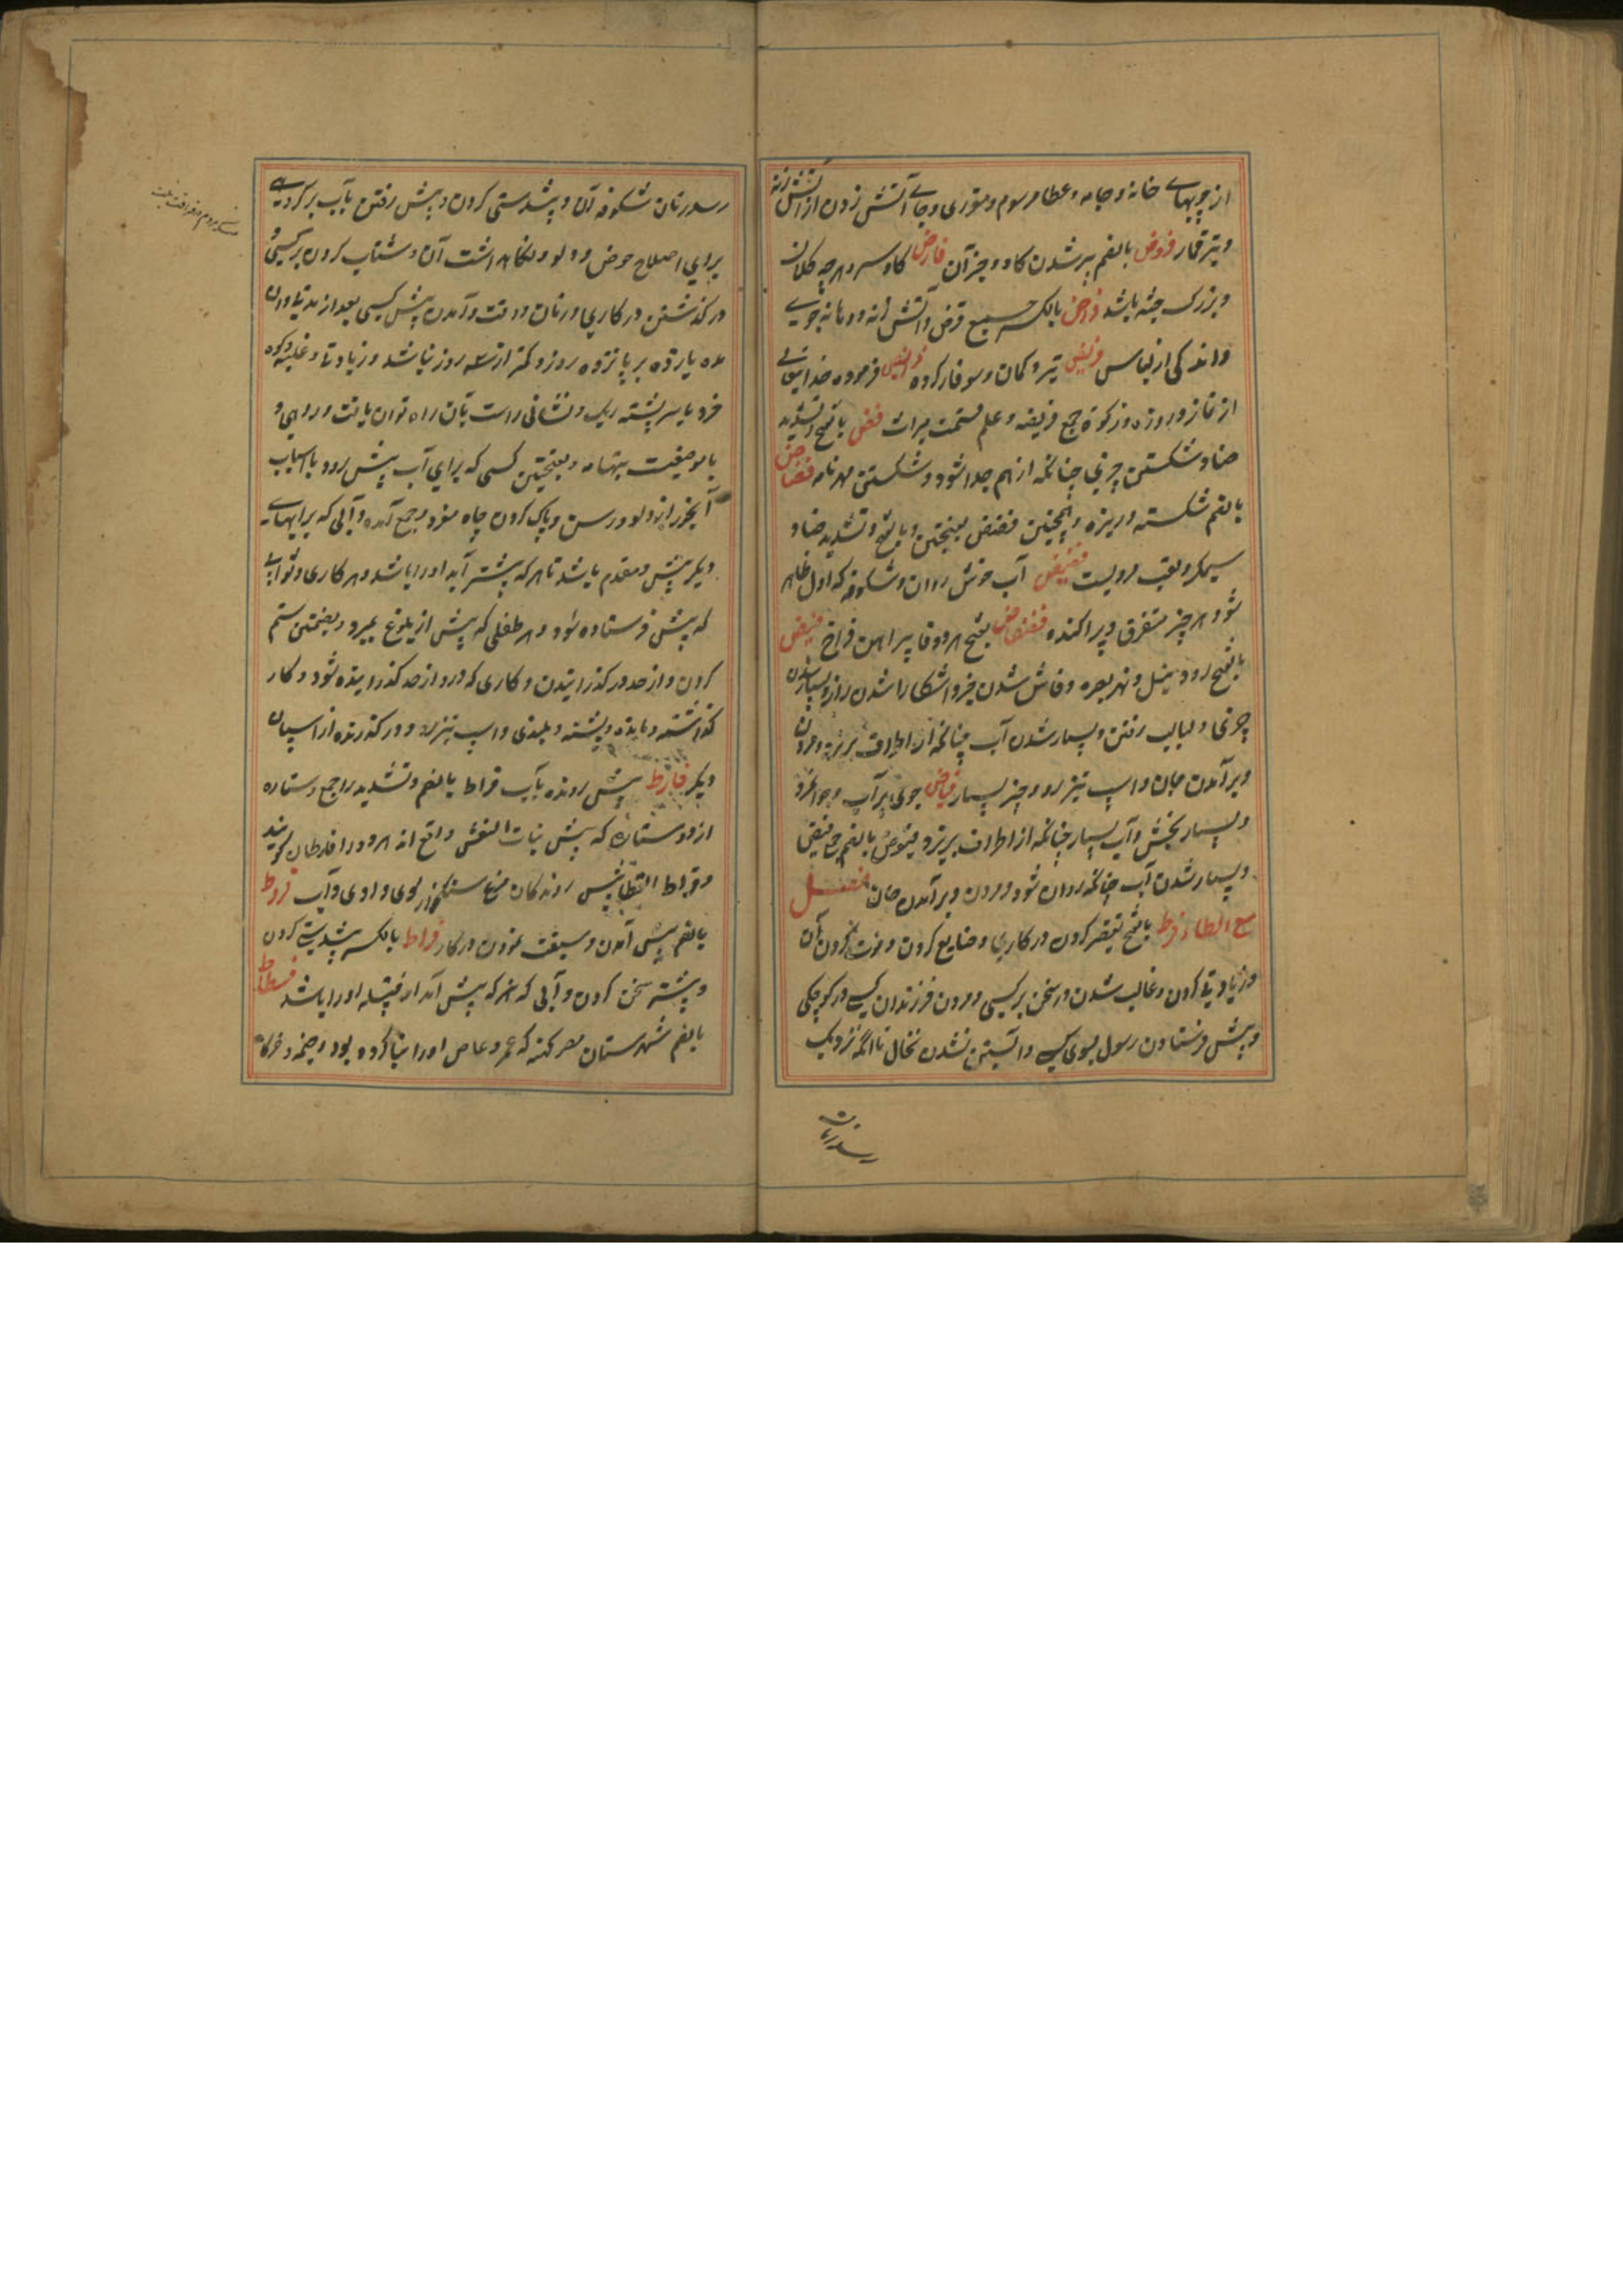 از چوبهاے خانه و جامه و عطا و رسوم و متوری و جاے آتش زدن از آتش زنه
و تیر قمار فروض بالضم پیر شدن کاو و جز آن فارض کاو و سر و هرچه کلان
و بزرک جثه باشد فراض بالکسر جمع فرض و آتش زنه و دهانه جوے
و اندکی از لباس فریض تیر و کمان و سوفار کرده فرائض فرموده خداتعالے
از نماز و روزه و زکوة جمع فریضه و علم قسمت میراث فض بالفتح و تشدید
ضاد شکستن چیزی چنانکه از هم جدا شود و شکستن مهر نامه فضاض
بالضم شکسته و ریزه و همچنین فضض بفتحتین و بالفتح و تشدید ضاد
سیمکر و لقب مردیست فضیض آب خوش روان و شکوفه که اول ظاهر
شود و هر چیز متفرق و پراکنده فضفاض بفتح هر دو فا پیراهن فراخ فیض
بالفتح رود نیل و نهر بصره و فاش شدن خبر و آشکارا شدن راز و بسیار شدن
چیزی و لبالب رفتن و بسیار شدن آب چنانکه از اطراف بریزد و مردن
و بر آمدن جان و اسپ تیز رو و چیز بسیار فیاض جوی پر آب و جوانمرد
و بسیار بخشش و آب بسیار چنانکه از اطراف بریزد و فیوض بالضم جمع فیض
و بسیار شدن آب چنانکه روان شود و مردن و بر آمدن جان فصل
مع الطاء فرط بالفتح تقصیر کردن در کاری و ضایع کردن و فوت کردن آن
و زیادتی کردن و غالب شدن در سخن بر کسی و مردن فرزندان کسے در کوچکی
و پیش فرستادن رسول بسوی کسے و آبستن نشدن نخال تا آنکه نزدیک
رسد زمان
رسد زمان شکوفه آن و پیشدستی کردن و پیش رفتن بآب بر کردے
براے اصلاح حوض و دلو و نکاهداشت آن و شتاب کردن بر کسی و
درکذشتن در کاری و زمان و وقت و آمدن پیش کسی بعد از مدتی و آن
ده یازده بر پانزده روز و کمتر از سه روز نباشد و زیادتی و غلبه و کوه
خرد یا سر پشته ریک و نشانی راست بآن راه توان یافت و روهی و
یا موضعیست بتهامه و بفتحتین کسی که برای آب پیش رود با اسباب
آبخور از دلو و رسن و پاک کردن چاه مفرد و جمع آمده و آبی که بر آبهاے
دیکر پیش و مقدم باشد تا هر که پیشتر آید او را باشد و هر کاری و ثوابی
که پیش فرستاده شود و هر طفلی که پیش از بلوغ بمیرد و بضمتین ستم
کردن و از حد در کذرانیدن و کاری که در و از حد کذرانیده شود و کار
کذاشته و مانده و پشته و بلندی و اسپ تیز رو و در کذرنده از اسپان
دیکر فارط پیش رونده بآب فراط بالضم و تشدید را جمع و ستاره
از دو ستاره که پیش بنات النعش واقع اند هر دو را فارطان کویند
و فراط القطا پیش روندکان مرغ سنکخوار بسوی وادی و آب فروط
بالضم پیش آمدن و سبقت نمودن در کار فراط بالکسر پیشدستی کردن
و پیشتر سخن کردن و آبی که هر که پیش آید از قبیله او را باشد فسطاط
بالضم شهرستان مصر کهنه که عمرو عاص او را بنا کرده بود و خیمه و خرکاه